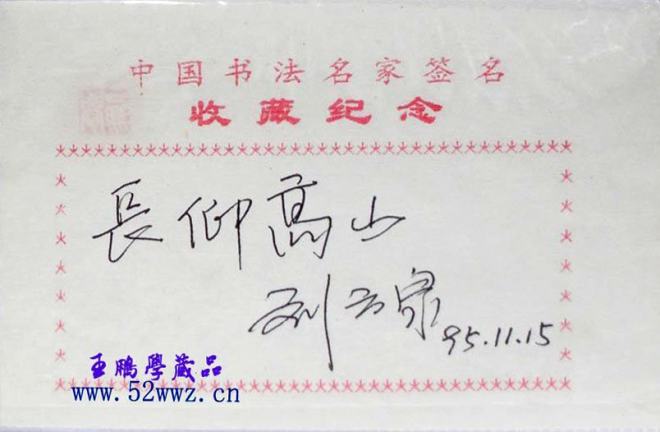 中国书法名家签名
收藏纪念
長仰高山
刘云泉
95.11.15
王鹏學藏品
www.52wwz.cn